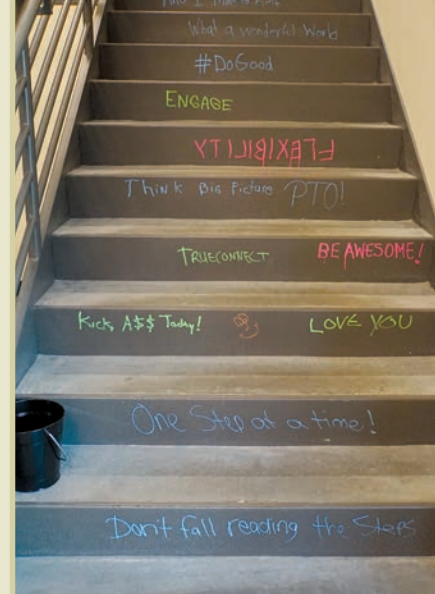 What a wonderful World
#DoGood
ENGAGE
FLEXIBILITY
Think Big Picture PTO!
TRUECONNECT BE AWESOME!
Kick A$$ Today! LOVE YOU
One Step at a time!
Don't fall reading the Steps